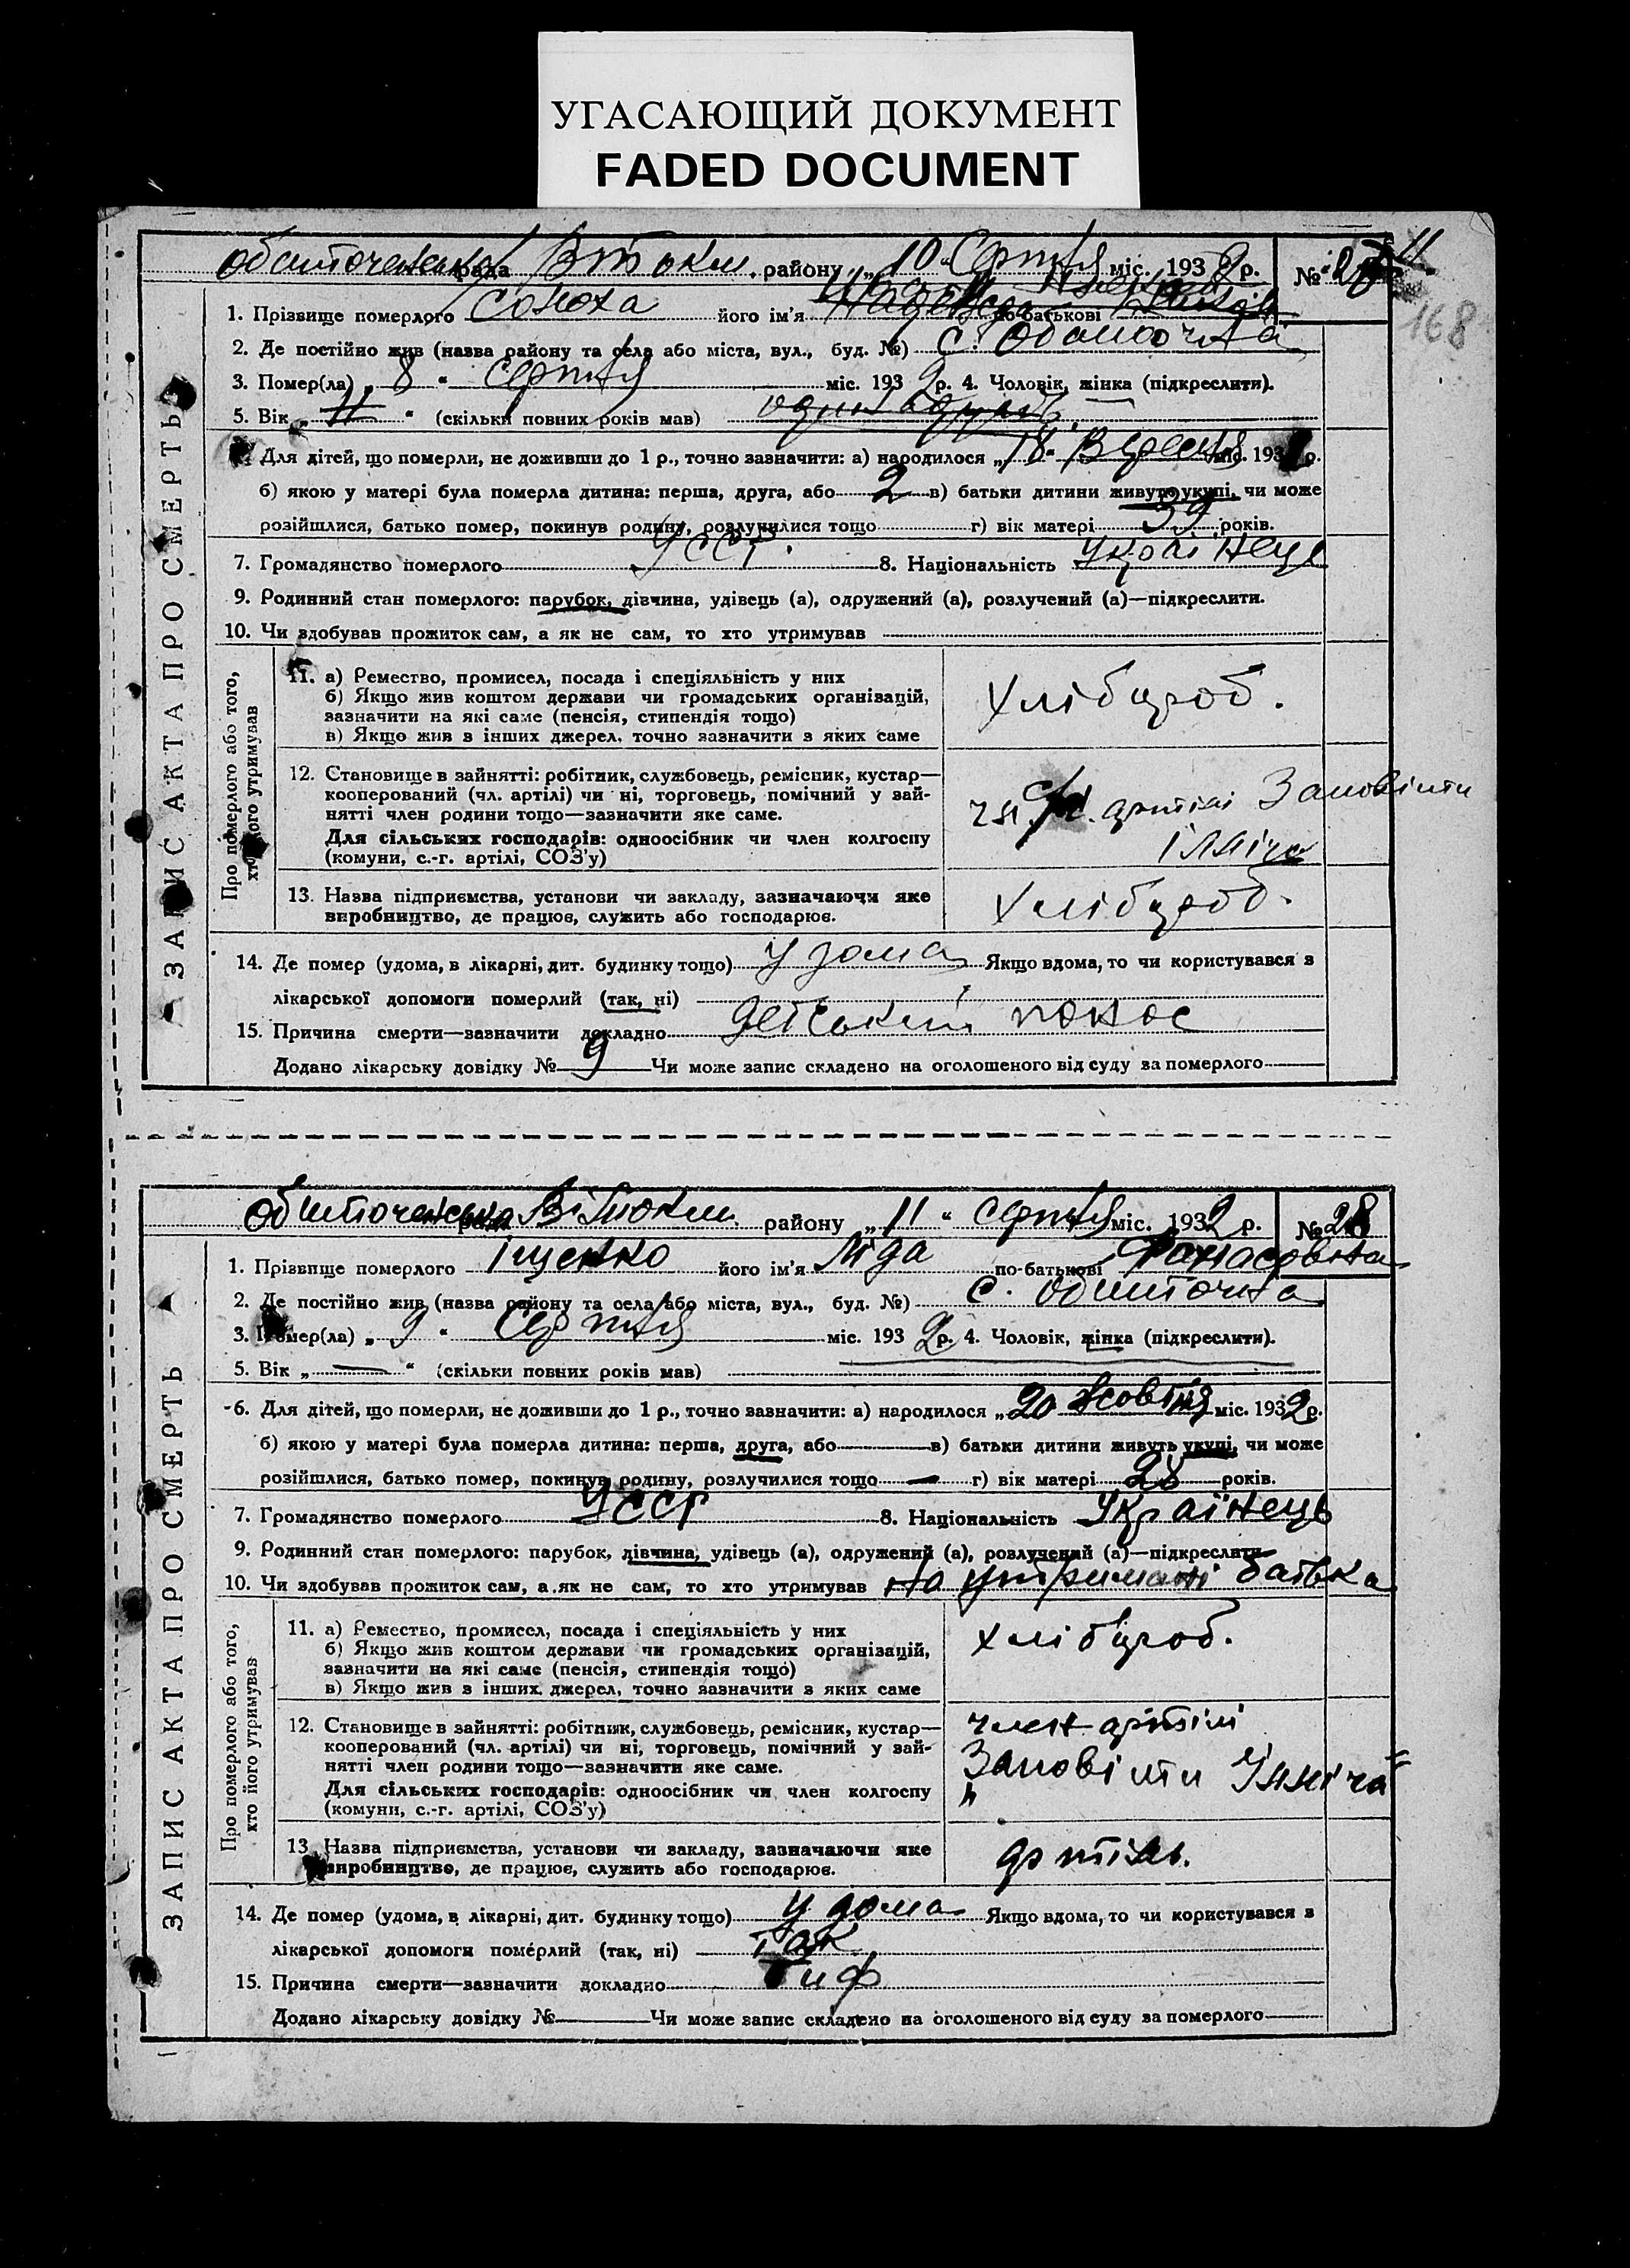 УГАСАЮЩИЙ ДОКУМЕНТ
FADED DOCUMENT
ЗАПИС АКТА ПРО СМЕРТЬ
рада району „10“ Серпня міс. 1932 р. №
168
1. Прізвище померлого Сонюха його ім'я по-батькові
2. Де постійно жив (назва району та села або міста, вул., буд. №) с. Обиточна
3. Помер(ла) „8“ Серпня міс. 1932 р. 4. Чоловік, жінка (підкреслити).
5. Вік „11“ (скільки повних років мав)
6. Для дітей, що померли, не доживши до 1 р., точно зазначити: а) народилося „18“ Вересня міс. 1931 р.
б) якою у матері була померла дитина: перша, друга, або 2 в) батьки дитини живуть укупі, чи може
розійшлися, батько помер, покинув родину, розлучилися тощо г) вік матері 39 років.
7. Громадянство померлого УССР. 8. Національність Українець
9. Родинний стан померлого: парубок, дівчина, удівець (а), одружений (а), розлучений (а)—підкреслити.
10. Чи здобував прожиток сам, а як не сам, то хто утримував
Про померлого або того, хто його утримував
11. а) Ремество, промисел, посада і спеціяльність у них
б) Якщо жив коштом держави чи громадських організацій,
зазначити на які саме (пенсія, стипендія тощо)
в) Якщо жив з інших джерел, точно зазначити з яких саме
Хлібороб.
12. Становище в зайнятті: робітник, службовець, ремісник, кустар—
кооперований (чл. артілі) чи ні, торговець, помічний у зай-
нятті член родини тощо—зазначити яке саме.
Для сільських господарів: одноосібник чи член колгоспу
(комуни, с.-г. артілі, СОЗ'у)
чл. с/г. артілі Заповіти
Ілліча
13. Назва підприємства, установи чи закладу, зазначаючи яке
виробництво, де працює, служить або господарює.
Хлібороб.
14. Де помер (удома, в лікарні, дит. будинку тощо) у дома Якщо вдома, то чи користувався з
лікарської допомоги померлий (так, ні)
15. Причина смерти—зазначити докладно детський понос
Додано лікарську довідку № 9 Чи може запис складено на оголошеного від суду за померлого
ЗАПИС АКТА ПРО СМЕРТЬ
Обиточенська рада району „11“ серпня міс. 1932 р. № 28
1. Прізвище померлого Іщенко його ім'я Ліда по-батькові Панасовна
2. Де постійно жив (назва району та села або міста, вул., буд. №) с. Обиточна
3. Помер(ла) „9“ Серпня міс. 1932 р. 4. Чоловік, жінка (підкреслити).
5. Вік „—“ (скільки повних років мав)
6. Для дітей, що померли, не доживши до 1 р., точно зазначити: а) народилося „20 Жовтня міс. 1932 р.
б) якою у матері була померла дитина: перша, друга, або в) батьки дитини живуть укупі, чи може
розійшлися, батько помер, покинув родину, розлучилися тощо — г) вік матері 28 років.
7. Громадянство померлого УССР 8. Національність Українець
9. Родинний стан померлого: парубок, дівчина, удівець (а), одружений (а), розлучений (а)—підкреслити
10. Чи здобував прожиток сам, а як не сам, то хто утримував На утримані батька
Про померлого або того, хто його утримував
11. а) Ремество, промисел, посада і спеціяльність у них
б) Якщо жив коштом держави чи громадських організацій,
зазначити на які саме (пенсія, стипендія тощо)
в) Якщо жив з інших джерел, точно зазначити з яких саме
хлібороб.
12. Становище в зайнятті: робітник, службовець, ремісник, кустар—
кооперований (чл. артілі) чи ні, торговець, помічний у зай-
нятті член родини тощо—зазначити яке саме.
Для сільських господарів: одноосібник чи член колгоспу
(комуни, с.-г. артілі, СОЗ'у)
член артілі
„Заповіти Ілліча“
13. Назва підприємства, установи чи закладу, зазначаючи яке
виробництво, де працює, служить або господарює.
артіль.
14. Де помер (удома, в лікарні, дит. будинку тощо) у дома Якщо вдома, то чи користувався з
лікарської допомоги померлий (так, ні) Так
15. Причина смерти—зазначити докладно Тиф
Додано лікарську довідку № Чи може запис складено на оголошеного від суду за померлого